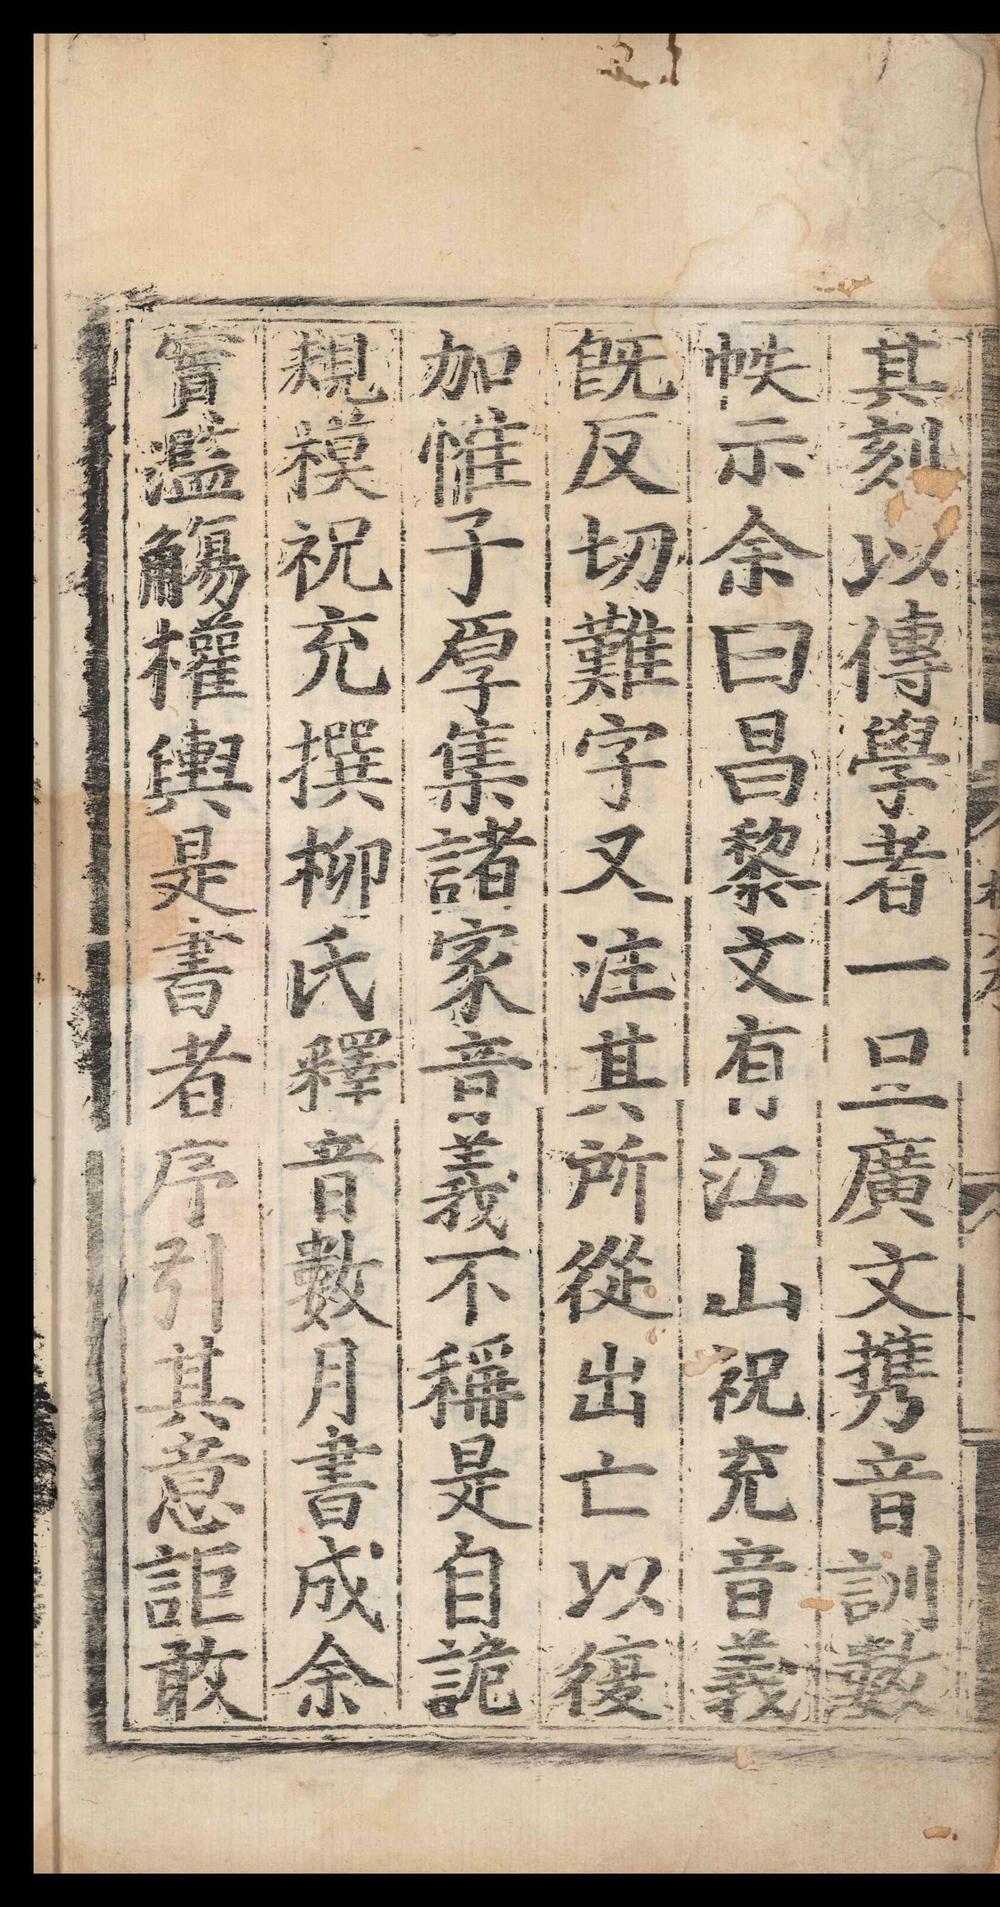 其刻以傳學者一旦廣文携音訓數
帙示余曰昌黎文有江山祝充音義
旣反切難字又注其所從出亡以復
加惟子厚集諸家音義不稱是自詭
規模祝充撰柳氏釋音數月書成余
實濫觴權輿是書者序引其意詎敢